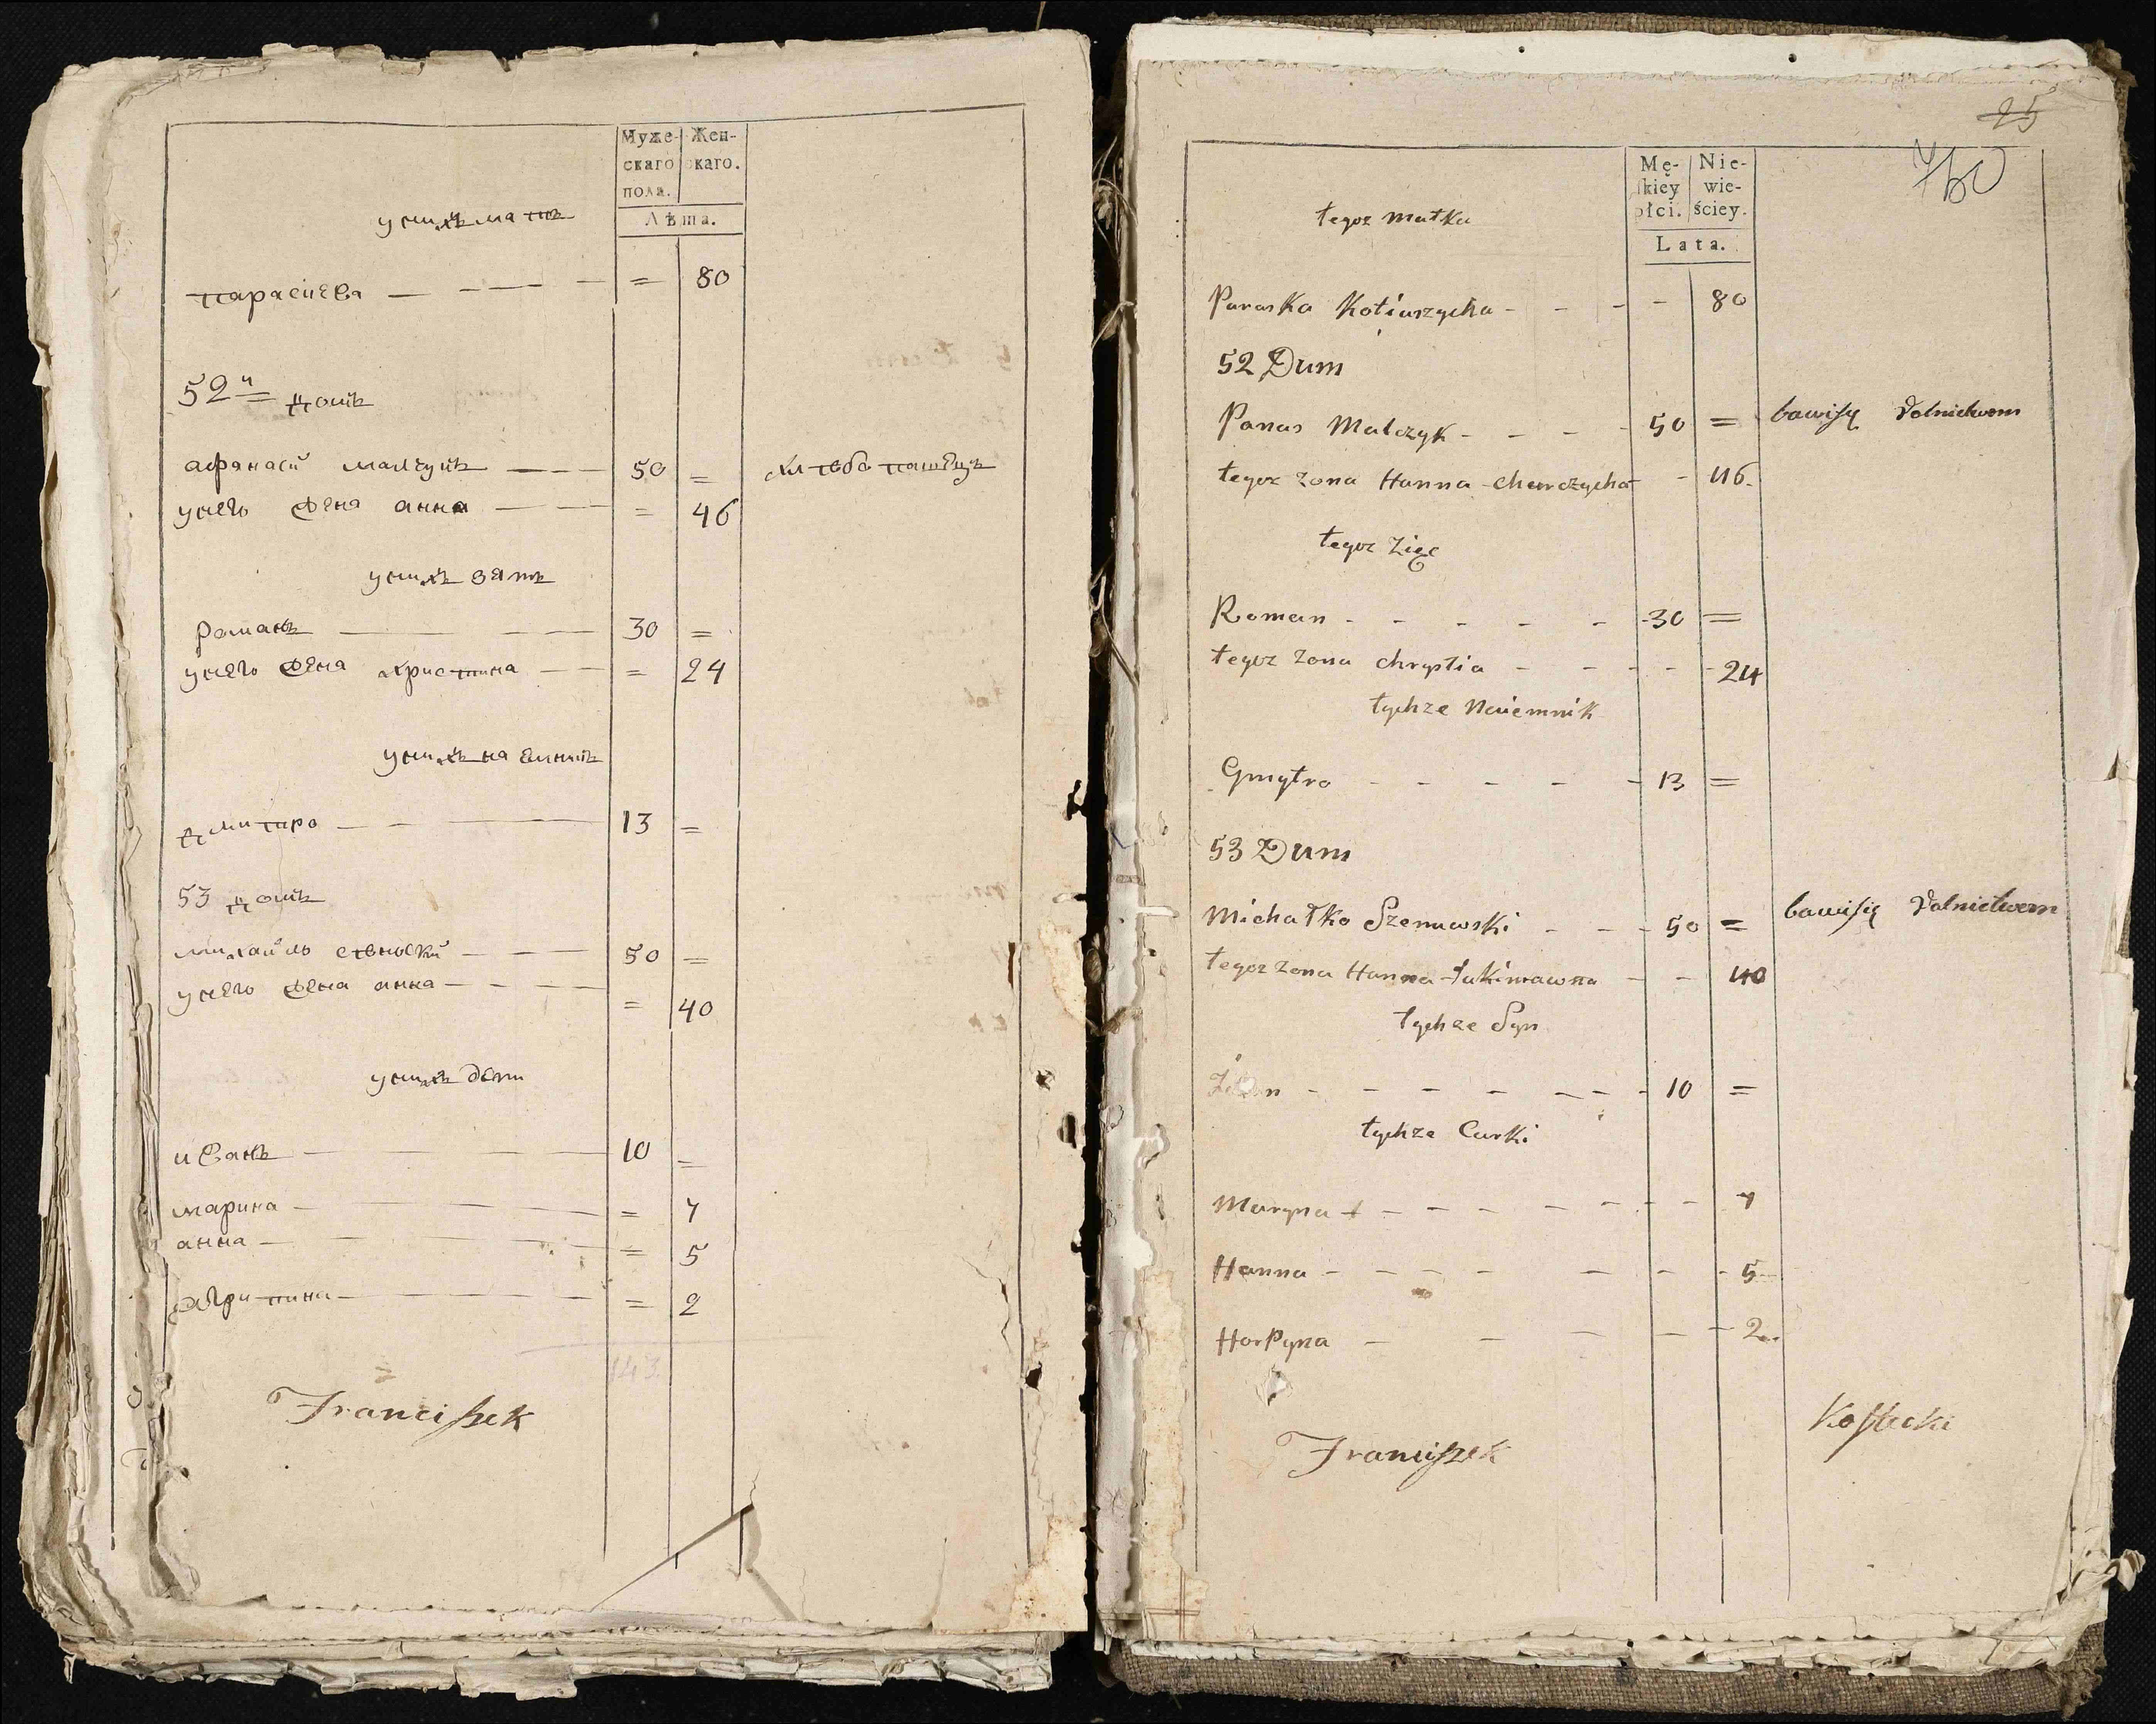 Муже-
скаго
пола.
Жен-
скаго.
Лѣта.
у нихъ мать
парасцева — — — — = 80
52й домъ
афанасий малчукъ — — 50 = хлѣбопашецъ
у него жена анна — — = 46
у нихъ зять
романъ — — — 30 =
у него жена христина — — = 24
у нихъ наемникъ
дмитиро — — — 13 =
53 домъ
михайло — — 50 =
у него жена анна — — — = 40
у нихъ дети
иванъ — — — 10 =
марина — — — = 7
анна — — — = 5
— — — = 2
143
Franciszek
25
760
Mę-
skiey
płci.
Nie-
wie-
ściey.
Lata.
tegoz matka
Paraska Kotiuszycha - - - - 80
52 Dum
Panas Malczyk - - - - 50 = bawisię Rolnictwem
tegoz zona Hanna - 46.
tegoz Zięc
Roman - - - - - 30 =
tegoz zona chrystia - - - - - 24
tychze Naiemnik
Gmytro - - - - - 13 =
53 Dum
Michałko - - - 50 = bawisię Rolnictwem
tegoz zona Hanna Jakimawna - - 40
tychze Syn
- - - - - - - 10 =
tychze Curki
Maryna - - - - - - - - 7
Hanna - - - - - - - 5
Horpyna - - - - - 2.
Franciszek Kossecki